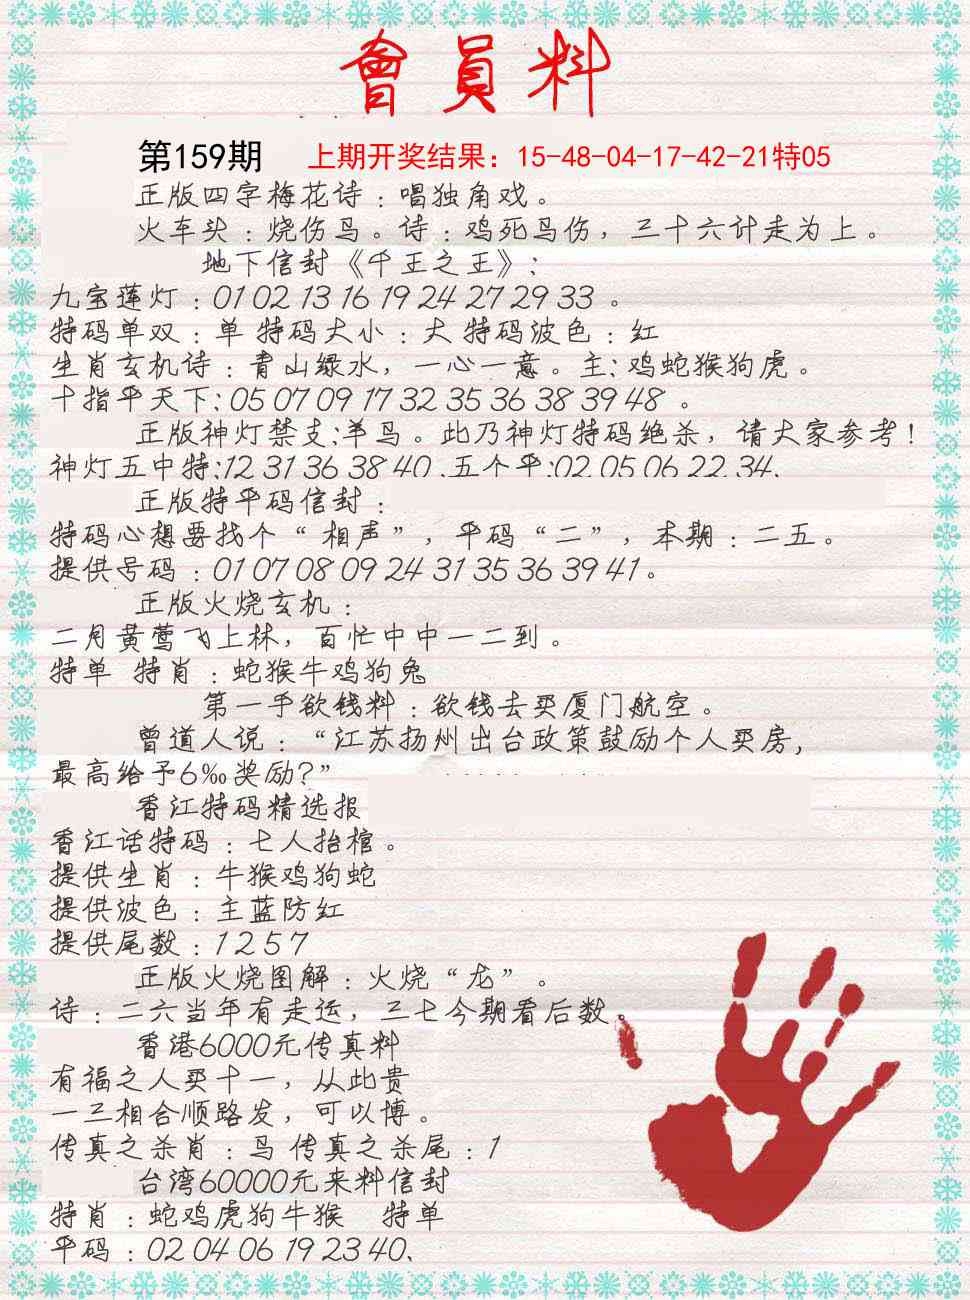 會員料
第159期 上期开奖结果：15-48-04-17-42-21特05
正版四字梅花诗：唱独角戏。
火车头：烧伤鸟。诗：鸡死鸟伤，三十六计走为上。
地下信封《千王之王》：
九宝莲灯：01 02 13 16 19 24 27 29 33 。
特码单双：单 特码大小：大 特码波色：红
生肖玄机诗：青山绿水，一心一意。主：鸡蛇猴狗虎。
十指平天下：05 07 09 17 32 35 36 38 39 48 。
正版神灯禁支：羊鸟。此乃神灯特码绝杀，请大家参考！
神灯五中特：12 31 36 38 40 .五个平：02 05 06 22 34、
正版特平码信封：
特码心想要找个“相声”，平码“二”，本期：二五。
提供号码：01 07 08 09 24 31 35 36 39 41。
正版火烧玄机：
二月黄莺飞上林，百忙中中一二到。
特单 特肖：蛇猴牛鸡狗兔
第一手欲钱料：欲钱去买厦门航空。
曾道人说：“江苏扬州出台政策鼓励个人买房，
最高给予6‰奖励？”
香江特码精选报
香江话特码：七人抬棺。
提供生肖：牛猴鸡狗蛇
提供波色：主蓝防红
提供尾数：1 2 5 7
正版火烧图解：火烧“龙”。
诗：二六当年有走运，三七今期看后数。
香港6000元传真料
有福之人买十一，从此贵
一三相合顺路发，可以博。
传真之杀肖：鸟 传真之杀尾：1
台湾60000元来料信封
特肖：蛇鸡虎狗牛猴 特单
平码：02 04 06 19 23 40、